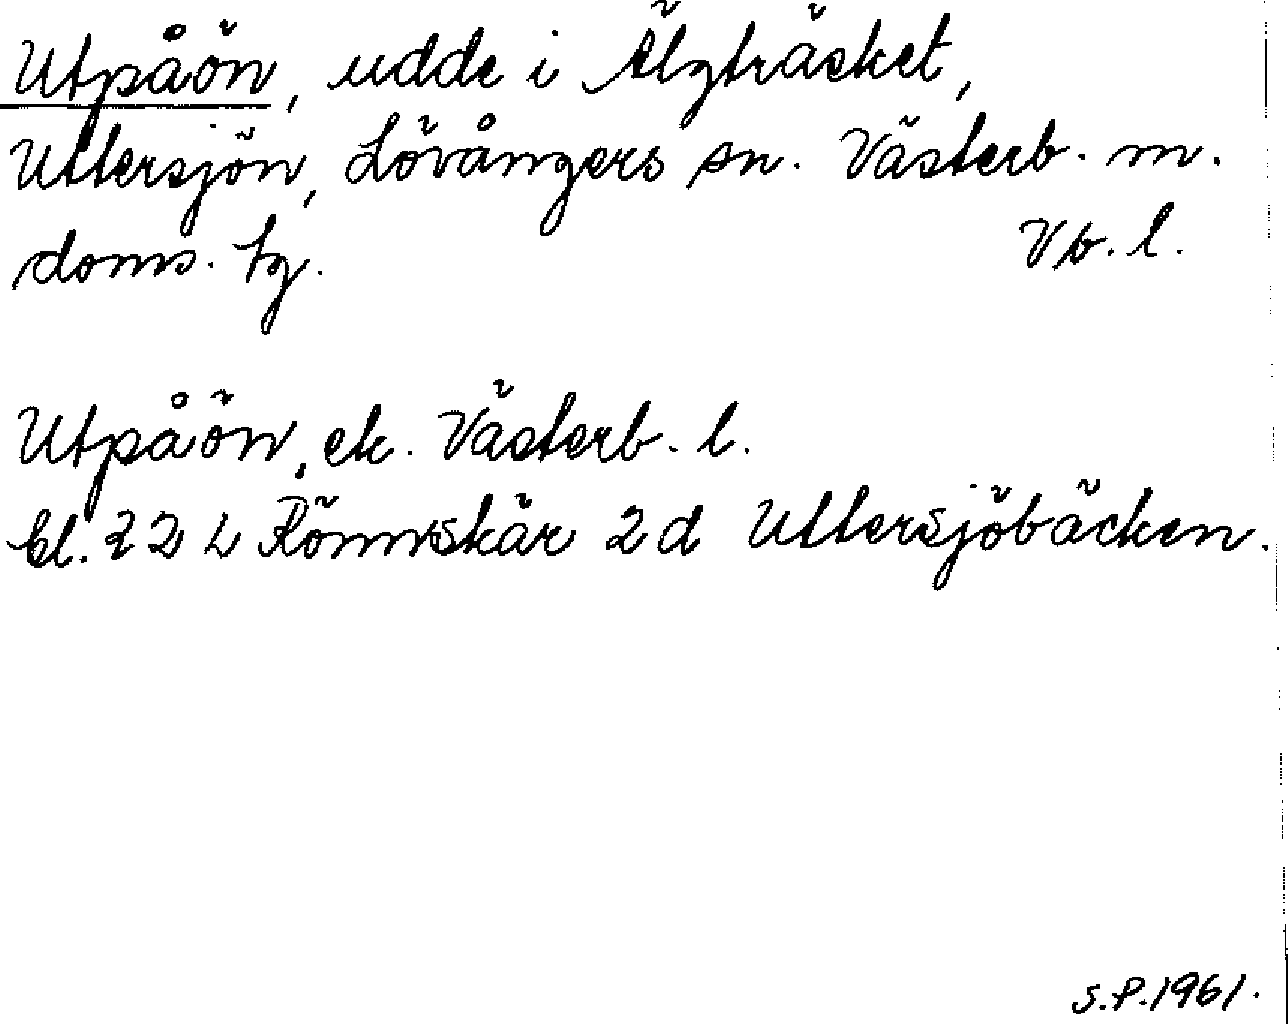 Utpåön, udde i Älgträsket,
Uttersjön, Lövångers sn. Västerb. m.
doms. tg. Vb. l.
Utpåön, ek. Västerb. l.
bl. 22 L Rönnskär 2d Uttersjöbäcken.
S.P. 1961.